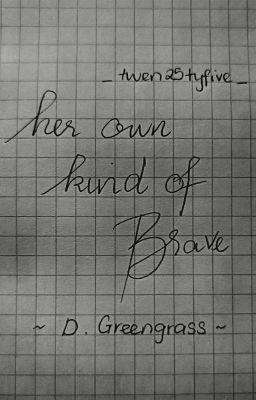 _twen25tyfive_
her own
kind of
Brave
~ D. Greengrass ~